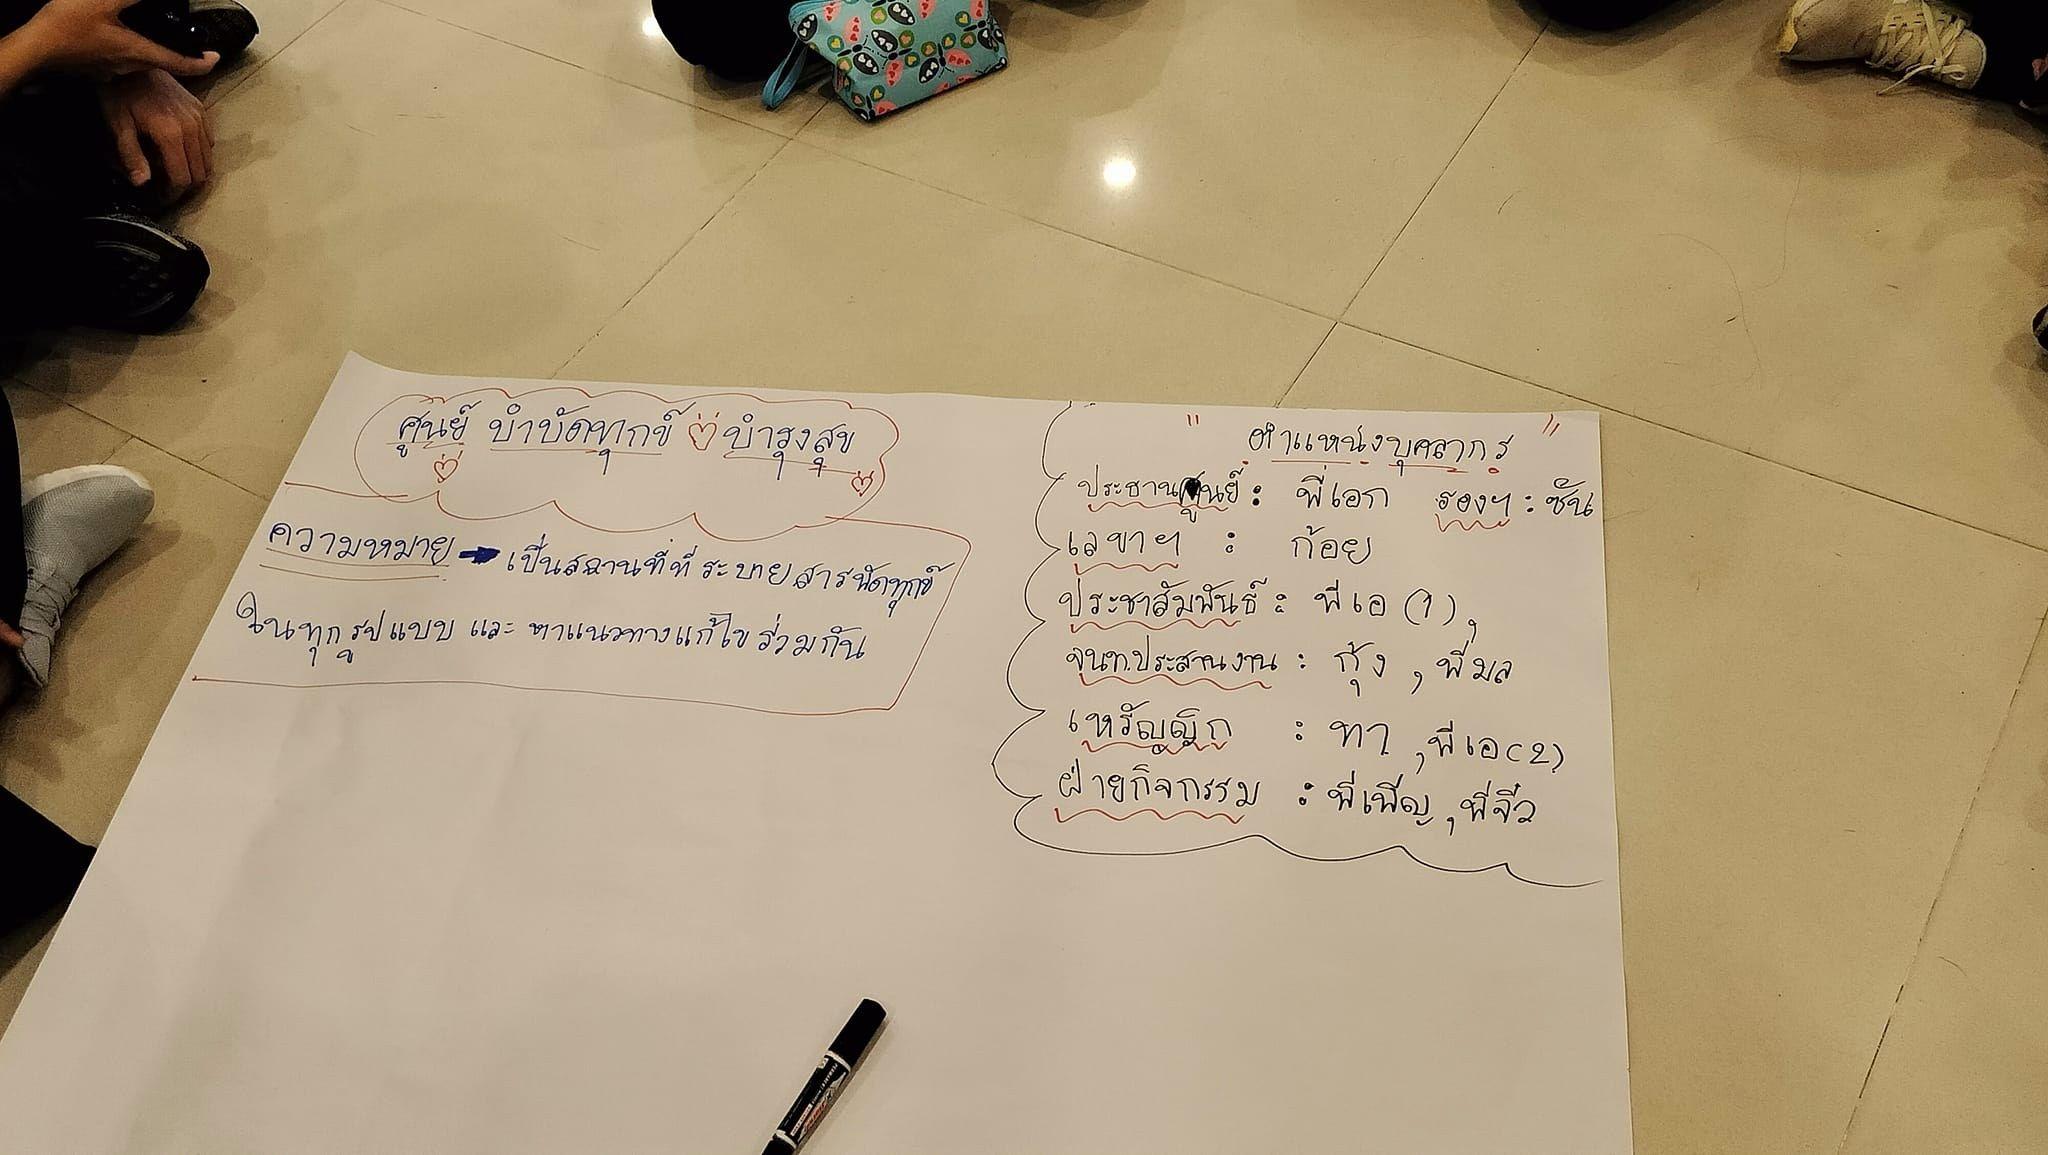 ศูนย์ บำบัดทุกข์ บำรุงสุข
ความหมาย → เป็นสถานที่ที่ระบายสารพัดทุกข์
ในทุกรูปแบบ และ หาแนวทางแก้ไขร่วมกัน
" ตำแหน่งบุคลากร "
ประธานศูนย์ : พี่เอก รองฯ : ซัน
เลขาฯ : ก้อย
ประชาสัมพันธ์ : พี่เอ (1),
จนท.ประสานงาน : กุ้ง , พี่มล
เหรัญญิก : ทา , พี่เอ (2)
ฝ่ายกิจกรรม : พี่เพ็ญ , พี่จิ๋ว